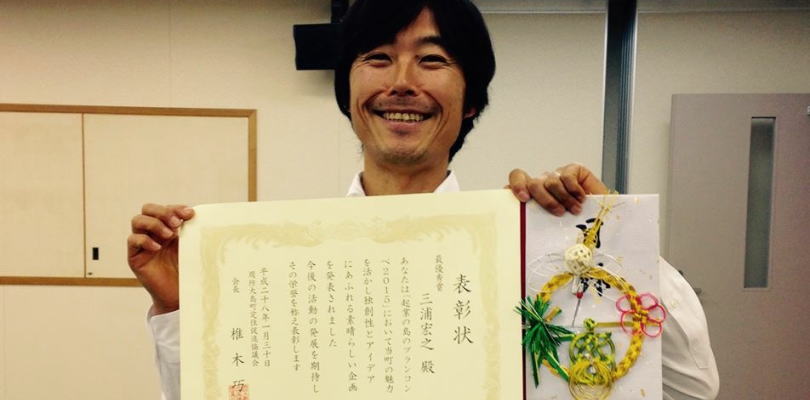 表彰状
最優秀賞
三浦宏之 殿
あなたは「起業の島のプランコン
ペ2015」において当町の魅力
を活かし独創性とアイデア
にあふれる素晴らしい企画
を発表されました
今後の活動の発展を期待し
その栄誉を称え表彰します
平成二十八年一月三十日
周防大島町定住促進協議会
会長 椎木巧